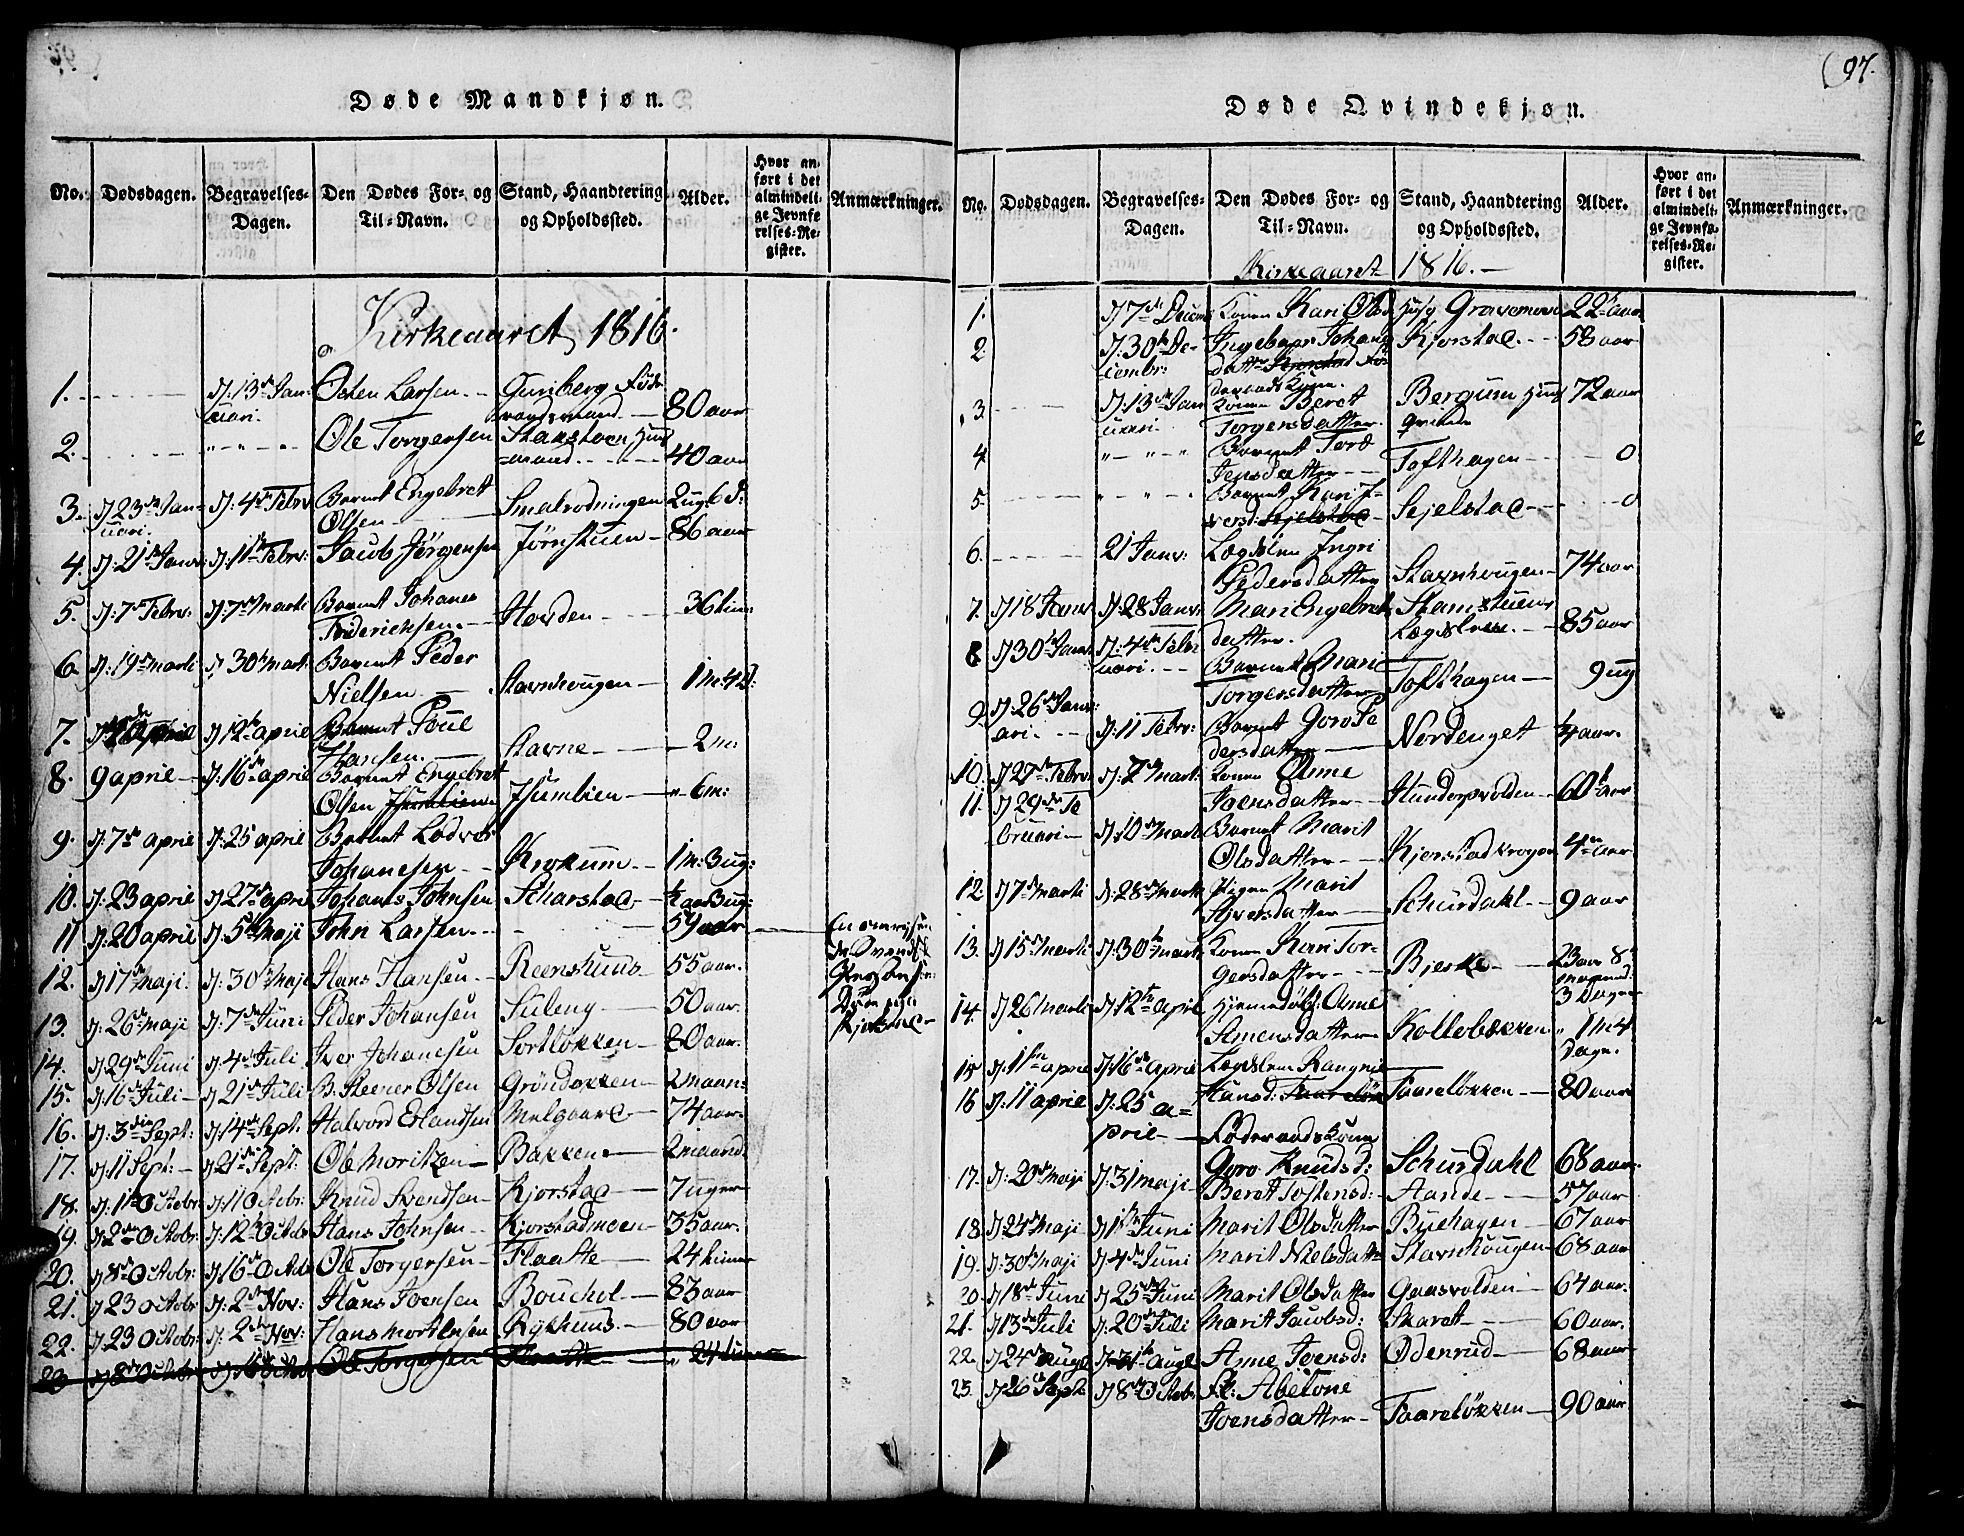 (97.
Døde Mandkjøn.
No. Dødsdagen. Begravelses-Dagen. Den Dødes For- og Til-Navn. Stand, Haandtering og Opholdssted. Alder. Hvor anført i det almindelige Jevnførelses-Register. Anmærkninger.
Kirkeaaret 1816.
1. d: 13de Januari. Østen Larsen Guriberg Føderaadsmand 80 aar
2. Ole Torgersen Huusmand 40 aar
3. d: 23de Januari. d: 4de Febr Barnet Engebret Olsen Smalrodningen 2 ug 6 d:
4. d: 21de Janv: d: 11te Febr: Jacob Jørgensen Jørnstuen 86 aar
5. d: 7de Febr: d: 7de Marti Barnet Johanes Friderichsen Hovden 36 tim:
6. d: 19de Marti d: 30te Marti Barnet Peder Nielsen Stavnhougen 1 m: 4 d:
7. d 12te april Barnet Poul Hansen Stavne 2 m:
8. 9 april d: 16de april Barnet Engebret Olsen Isumlien 6 m:
9. d: 7de april d: 25 april Barnet Lodves Johanesen Krokum 1 m: 3 ug:
10. d: 23 april d: 27de april Johans Johnsen Scharstad 3 ug:
11 d: 20 april d: 5te Maji John Larsen 59 aar
12. d 17de maji. d: 30te Maji Hans Hansen Reenshuus 55 aar.
13. d: 26de maji d: 7de Juni Peder Johansen Suleng 50 aar.
14. d: 29de Juni d: 4de Juli Iver Johanesen Sortløkken 80 aar.
15. d: 16de Juli d: 21de Juli B. Steener Olsen Grøndokken 2 maan:
16. d: 3die Sept: d: 14de Sept. Halvord Erlandsen Melgaard 74 aar.
17. d: 11 Sept: d: 21de Sept: Ole Moritzen Bakken 2 maand
18. d: 1te Octobr d: 11 Octobr: Knud Svendsen Kjorstad 7 uger
19. d: 2den Octobr: d: 12te Octobr Hans Johnsen Kjorstadmoen 35 aar.
20. d 8de Octobr: d 16de Octobr Ole Torgersen Flaatte 24 timer
21. d 23 Octobr d: 2den Nov: Hans Joensen Bouchol 83 aar
22. d: 23 Octobr: d: 2den Nov: Hans Mortensen Rykhuus. 80 aar
23 d 8de Octobr d 16de Octobr Ole Torgersen Flaatte 24 timer
Døde Qvindekjøn.
No. Dødsdagen. Begravelses-Dagen. Den Dødes For- og Til-Navn. Stand, Haandtering og Opholdssted. Alder. Hvor anført i det almindelige Jevnførelses-Register. Anmærkninger.
Kirkeaaret 1816.
1. d 7de Decem Konen Kari Olsd 22 aar
2 d: 30te Decembr: Ingebaar Johansdatter Kjorstad Føderaadskone. Kjorstad 58 aar
3. d: 13de Januari. Konen Beret Torgersdatter. Bergum 72 aar
4 Barnet Tore Jensdatter Tofthagen 0
5. Barnet Kari Iversd: Sejelstad Sejelstad 0
6. 21 Janv: Lægdslem Ingri Pedersdatter Stavnhougen 74 aar
7. d 18 Janv d: 28 Janv: Mari Engebretsdatter. Stamstuen Lægdslem 85 aar
8 d 30te Janv d: 4de Febr Barnet Mari Torgersdatter Tofthagen 9 ug
9 d: 26de Januari. d: 11 Febr: Barnet Goro Pedersdatter Nordenget ¼ aar.
10. d: 27de Febr. d: 7de Marti Konen Anne Joensdatter Hunderpvolden 60 aar
11. d: 29de Februari d: 10de Marti Barnet Marit Olsdatter Kjorstadkrogen 4 aar
12. d 7de Marti d: 28de Marti Pigen Marit Sjversdatter Schurdahl 9 aar
13. d 15de Marti d: 30te Marti Konen Kari Torgersdatter Bjerke 23 aar 8 maaned 3 dage
14. d: 26 Marti d: 12te april Anne Simensdatter Kollebækken 1 m 4 dage.
15 d: 1ste april d: 16de april Lægdslem Rangnil Hansd: Taareløkken Taareløkken 80 aar
16 d: 11 april d: 25 april Føderaadskone Goro Knudsd: Schurdahl 68 aar.
17. d: 20de Maji d: 31 maji Beret Tostensd: Aande 57 aar
18 d: 24de Maji d 1ste Juni Marit Olsdatter Buehagen 67 aar
19. d: 30te Maji d: 4de Juni Marit Nielsdatter Stavnhougen 68 aar
20 d 18de Juni d 25de Juni Marit Olsdatter Gaasvolden 64 aar.
21. d 13de Juli d: 20de Juli Marit Jacobsd: Skaret 60 aar.
22. d 24de Augl d 31te Augl Anne Joensd: Odenrud 68 aar
23. d 26de Sept d 8de Octobr Abelone Joensdatter Taareløkken 90 aar